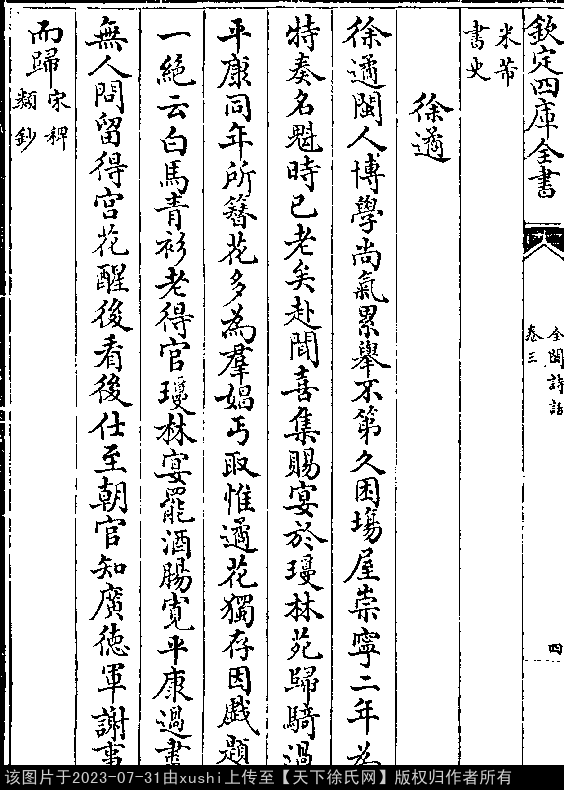 欽定四庫全書
全閩詩話
卷三
四
米芾
書史
徐遹
徐遹閩人博學尚氣累舉不第久困場屋崇寧二年為
特奏名魁時已老矣赴聞喜集賜宴於瓊林苑歸騎過
平康同年所簪花多為羣娼丐取惟遹花獨存因戲題
一絶云白馬青衫老得官瓊林宴罷酒腸寛平康過盡
無人問留得宫花醒後看後仕至朝官知廣徳軍謝事
而歸
宋稗
類鈔
该图片于2023-07-31由xushi上传至【天下徐氏网】版权归作者所有